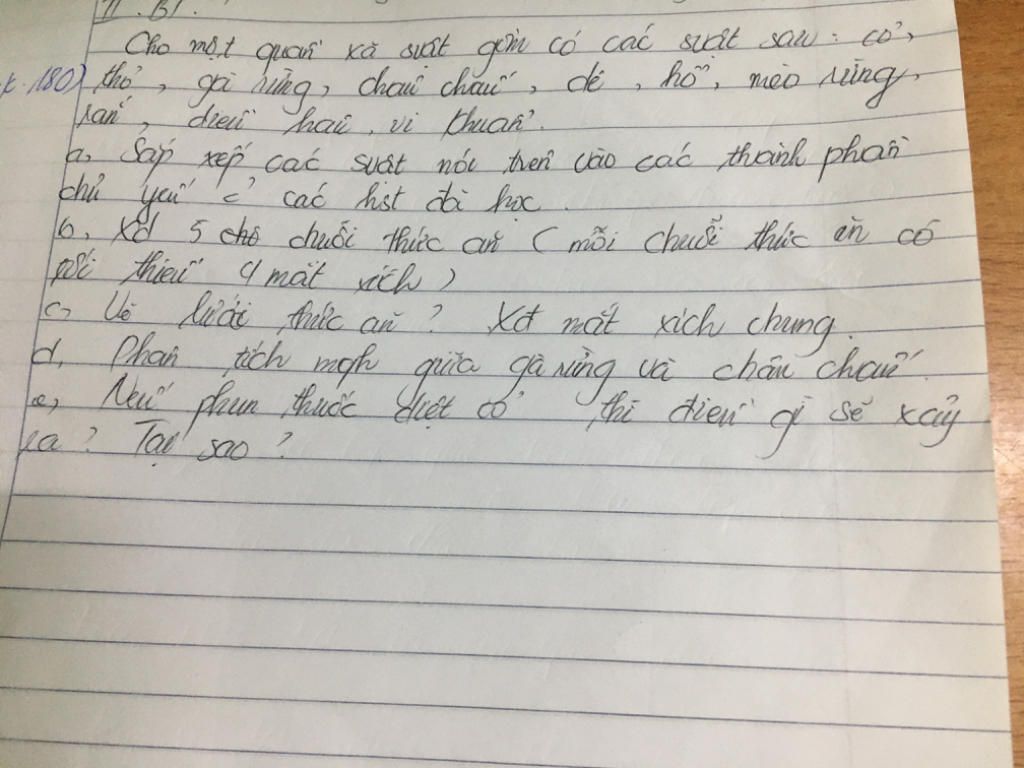 II. BT.
Cho một quần xã svật gồm có các svật sau: cỏ,
180) thỏ, gà rừng, châu chấu, dê, hổ, mèo rừng,
rắn, diều hâu, vi khuẩn.
a, Sắp xếp các svật nói trên vào các thành phần
chủ yếu các hst đã học.
b, Xd 5 chuỗi thức ăn (mỗi chuỗi thức ăn có
tối thiểu 4 mắt xích)
c, Vẽ lưới thức ăn? Xđ mắt xích chung.
d, Phân tích mqh giữa gà rừng và châu chấu.
e, Nếu phun thuốc diệt cỏ thì điều gì sẽ xảy
ra? Tại sao?